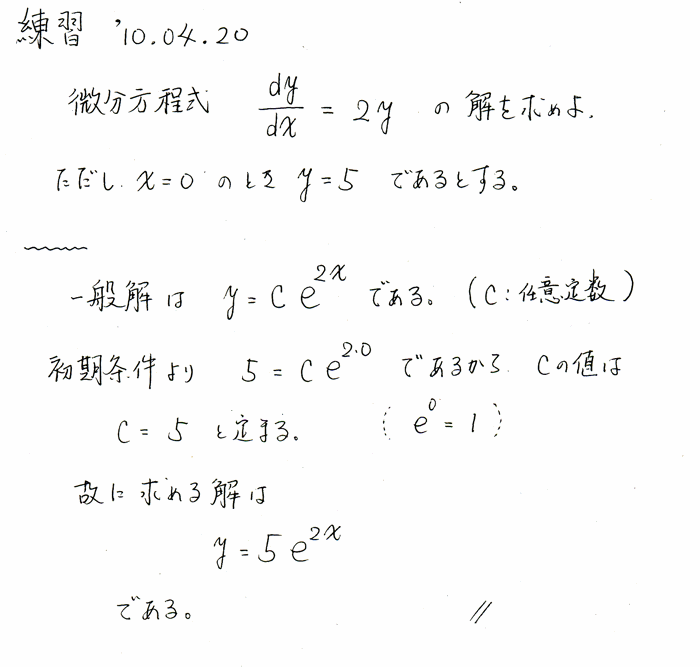 練習 '10.04.20
微分方程式 dy/dx = 2y の解を求めよ.
ただし. x=0 のとき y=5 であるとする。
一般解は y = C e^{2x} である。 (C:任意定数)
初期条件より 5 = C e^{2・0} であるから Cの値は
C = 5 と定まる。 ( e^0 = 1 )
故に求める解は
y = 5 e^{2x}
である。 //